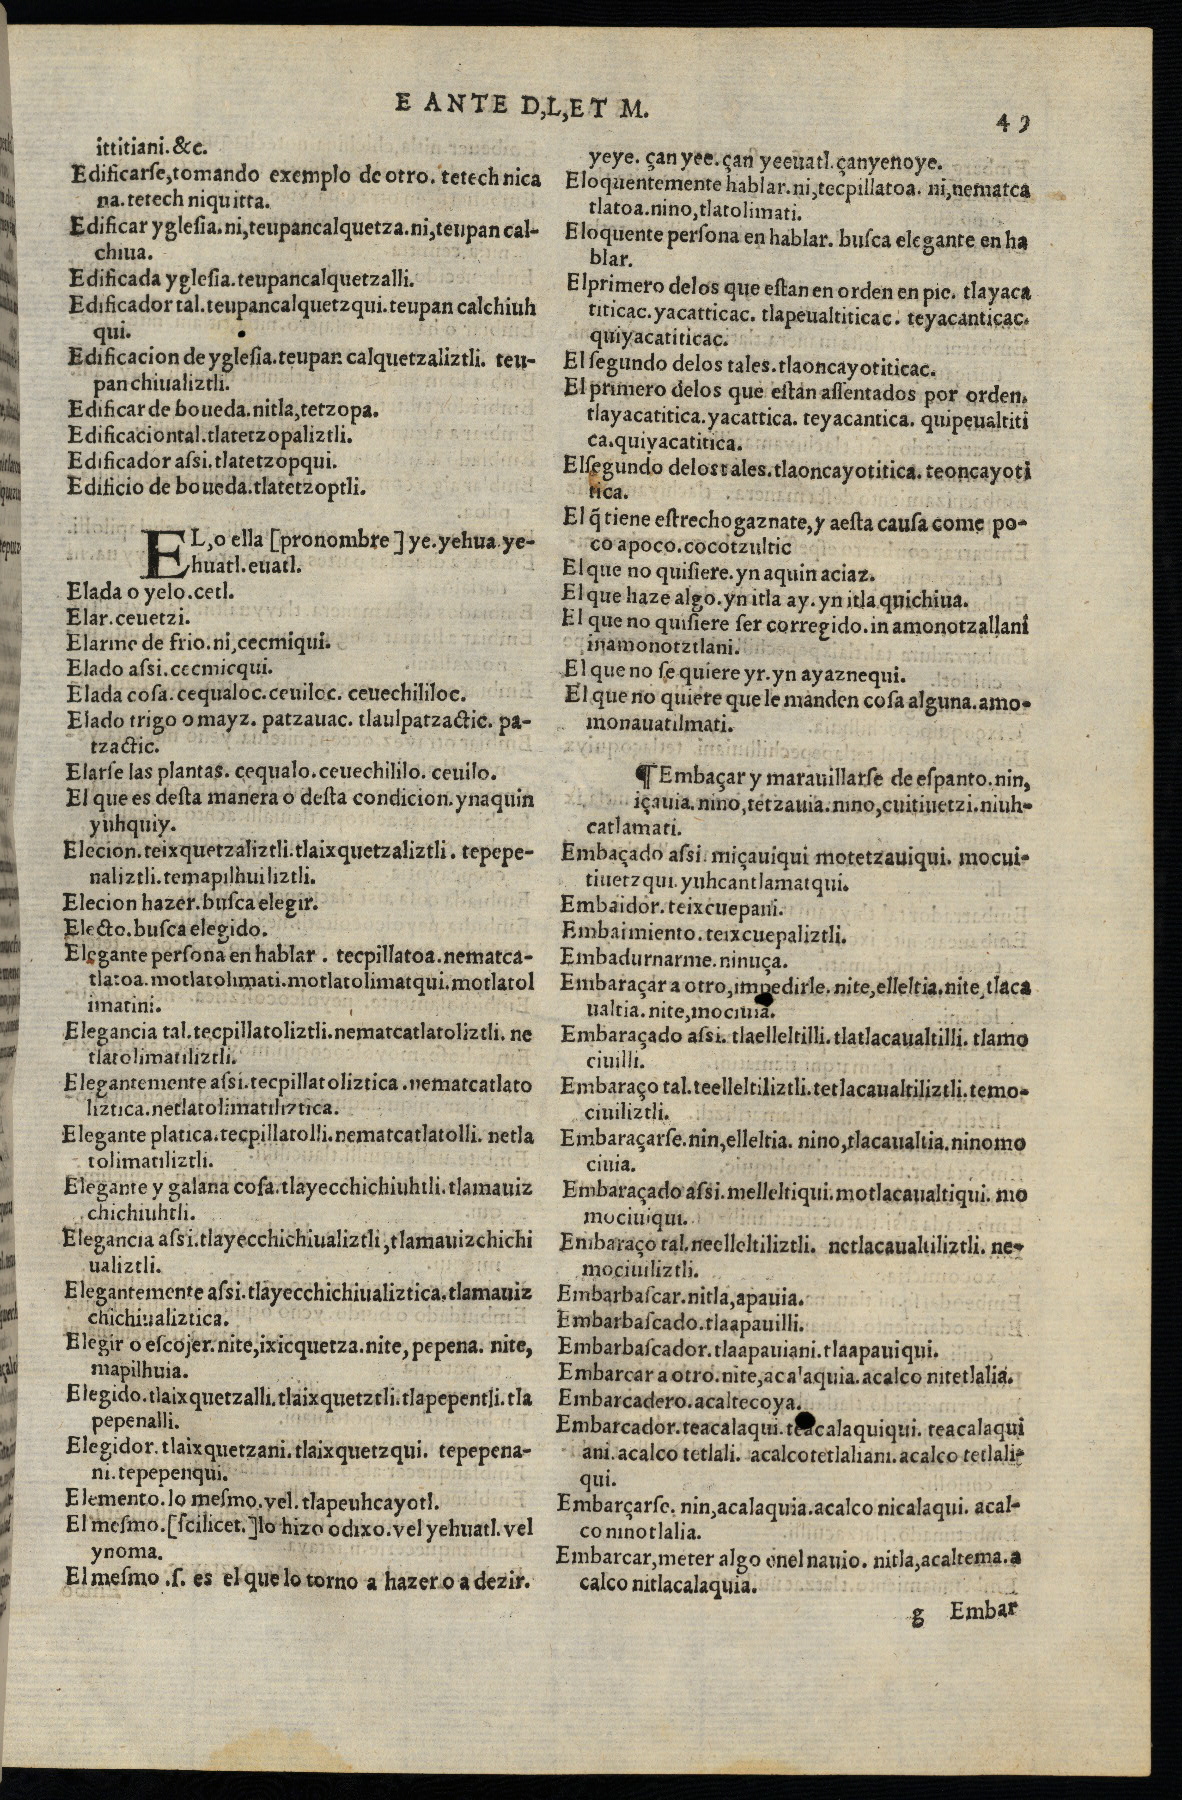 E ANTE D,L,ET M.
49
ittitiani.&c.
Edificarſe,tomando exemplo de otro. tetech nica
na.tetech niquitta.
Edificar ygleſia.ni,teupancalquetza.ni,teupan cal-
chiua.
Edificada ygleſia.teupancalquetzalli.
Edificador tal.teupancalquetzqui.teupan calchiuh
qui.
Edificacion de ygleſia.teupan calquetzaliztli. teu-
panchiualiztli.
Edificar de boueda.nitla,tetzopa.
Edificaciontal.tlatetzopaliztli.
Edificador aſsi.tlatetzopqui.
Edificio de boueda.tlatetzoptli.
EL,o ella [pronombre] ye.yehua.ye-
huatl.euatl.
Elada o yelo.cetl.
Elar.ceuetzi.
Elarme de frio.ni,cecmiqui.
Elado aſsi.cecmicqui.
Elada coſa.cequaloc.ceuiloc. ceuechililoc.
Elado trigo o mayz. patzauac. tlaulpatzactic. pa-
tzactic.
Elarſe las plantas. cequalo.ceuechililo. ceuilo.
El que es deſta manera o deſta condicion.ynaquin
yuhquiy.
Elecion.teixquetzaliztli.tlaixquetzaliztli. tepepe-
naliztli.temapilhuiliztli.
Elecion hazer.buſca elegir.
Electo.buſca elegido.
Elegante perſona en hablar . tecpillatoa.nematca-
tlatoa.motlatolimati.motlatolimatqui.motlatol
imatini.
Elegancia tal.tecpillatoliztli.nematcatlatoliztli. ne
tlatolimatiliztli.
Elegantemente aſsi.tecpillatoliztica.nematcatlato
liztica.netlatolimatiliztica.
Elegante platica.tecpillatolli.nematcatlatolli. netla
tolimatiliztli.
Elegante y galana coſa.tlayecchichiuhtli.tlamauiz
chichiuhtli.
Elegancia aſsi.tlayecchichiualiztli,tlamauizchichi
ualiztli.
Elegantemente aſsi.tlayecchichiualiztica.tlamauiz
chichiualiztica.
Elegir o eſcojer.nite,ixicquetza.nite, pepena. nite,
mapilhuia.
Elegido.tlaixquetzalli.tlaixquetztli.tlapepentli.tla
pepenalli.
Elegidor.tlaixquetzani.tlaixquetzqui. tepepena-
ni.tepepenqui.
Elemento.lo meſmo.vel.tlapeuhcayotl.
El meſmo.[ſcilicet.]lo hizo o dixo.vel yehuatl.vel
ynoma.
El meſmo .ſ. es el que lo torno a hazer o a dezir.
yeye. çan yee.çan yeeuatl.çanyenoye.
Eloquentemente hablar.ni,tecpillatoa. ni,nematca
tlatoa.nino,tlatolimati.
Eloquente perſona en hablar. buſca elegante en ha
blar.
El primero delos que eſtan en orden en pie. tlayaca
titicac.yacatticac. tlapeualtiticac. teyacanticac.
quiyacatiticac.
El ſegundo delos tales.tlaoncayotiticac.
El primero delos que eſtan aſſentados por orden.
tlayacatitica.yacattica. teyacantica. quipeualtiti
ca.quiyacatitica.
El ſegundo delos tales.tlaoncayotitica. teoncayoti
tica.
El q̃ tiene eſtrecho gaznate,y aeſta cauſa come po-
co apoco.cocotzultic
El que no quiſiere.yn aquin aciaz.
El que haze algo.yn itla ay. yn itla quichiua.
El que no quiſiere ſer corregido.in amonotzallani
inamonotztlani.
El que no ſe quiere yr.yn ayaznequi.
El que no quiere que le manden coſa alguna.amo-
monauatilmati.
¶ Embaçar y marauillarſe de eſpanto.nin,
içauia.nino,tetzauia.nino,cuitiuetzi.niuh-
catlamati.
Embaçado aſsi. miçauiqui motetzauiqui. mocui-
tiuetzqui.yuhcantlamatqui.
Embaidor.teixcuepani.
Embaimiento.teixcuepaliztli.
Embadurnarme.ninuça.
Embaraçar a otro,impedirle.nite,elleltia.nite,tlaca
ualtia.nite,mociuia.
Embaraçado aſsi. tlaelleltilli.tlatlacaualtilli. tlamo
ciuilli.
Embaraço tal.teelleltiliztli.tetlacaualtiliztli.temo-
ciuiliztli.
Embaraçarſe.nin,elleltia. nino,tlacaualtia.ninomo
ciuia.
Embaraçado aſsi.melleltiqui.motlacaualtiqui. mo
mociuiqui.
Embaraço tal.neelleltiliztli. netlacaualtiliztli. ne-
mociuiliztli.
Embarbaſcar.nitla,apauia.
Embarbaſcado.tlaapauilli.
Embarbaſcador.tlaapauiani.tlaapauiqui.
Embarcar a otro.nite,acalaquia.acalco nitetlalia.
Embarcadero.acaltecoya.
Embarcador.teacalaqui.teacalaquiqui. teacalaqui
ani.acalco tetlali. acalcotetlaliani.acalco tetlali-
qui.
Embarçarſe. nin,acalaquia.acalco nicalaqui. acal-
co ninotlalia.
Embarcar,meter algo enel nauio. nitla,acaltema.a
calco nitlacalaquia.
g Embar